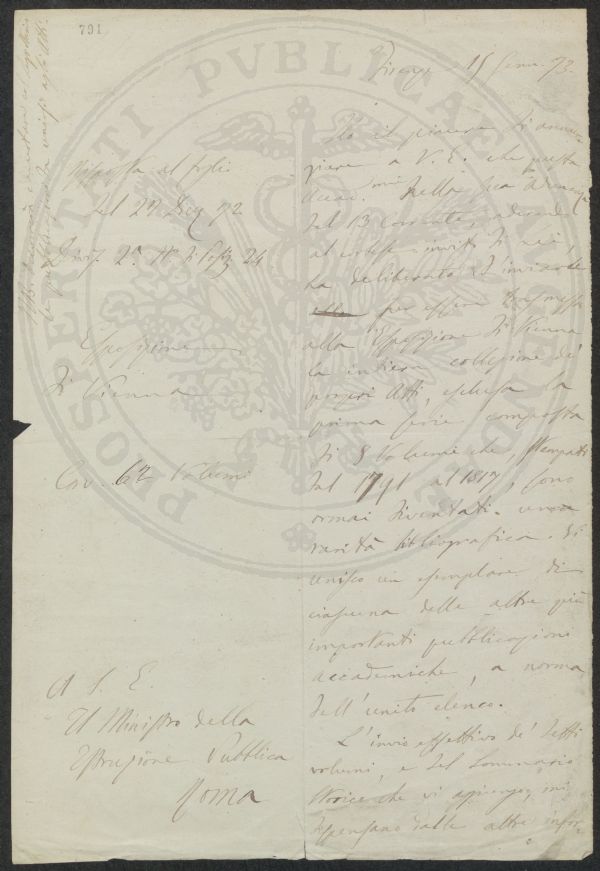 791
Firenze 15 Genn. 73.
Risposta al foglio
del 27 Dic. 72
Esposizione
di Vienna
Con 62 Volumi
A S. E.
Il Ministro della
Istruzione Pubblica
Roma
Ho il piacere di annun-
ziare a V. E. che questa
Accad. nella sua Adunanza
del 13 corrente, aderendo
al cortese invito di Lei,
ha deliberato d'inviarle
per essere trasmessa
alla Esposizione di Vienna
la intiera collezione de'
propri Atti, esclusa la
prima serie composta
di 8 Volumi che, stampati
dal 1791 al 1817, sono
ormai diventati una
rarità bibliografica. Vi
unisco un esemplare di
ciascuna delle altre più
importanti pubblicazioni
accademiche, a norma
dell'unito elenco.
L'invio effettivo de' detti
volumi, e del Sommario
Storico che vi aggiungo, mi
dispensano dalle altre infor-
PROSPERITATI PVBLICAE AVGENDAE